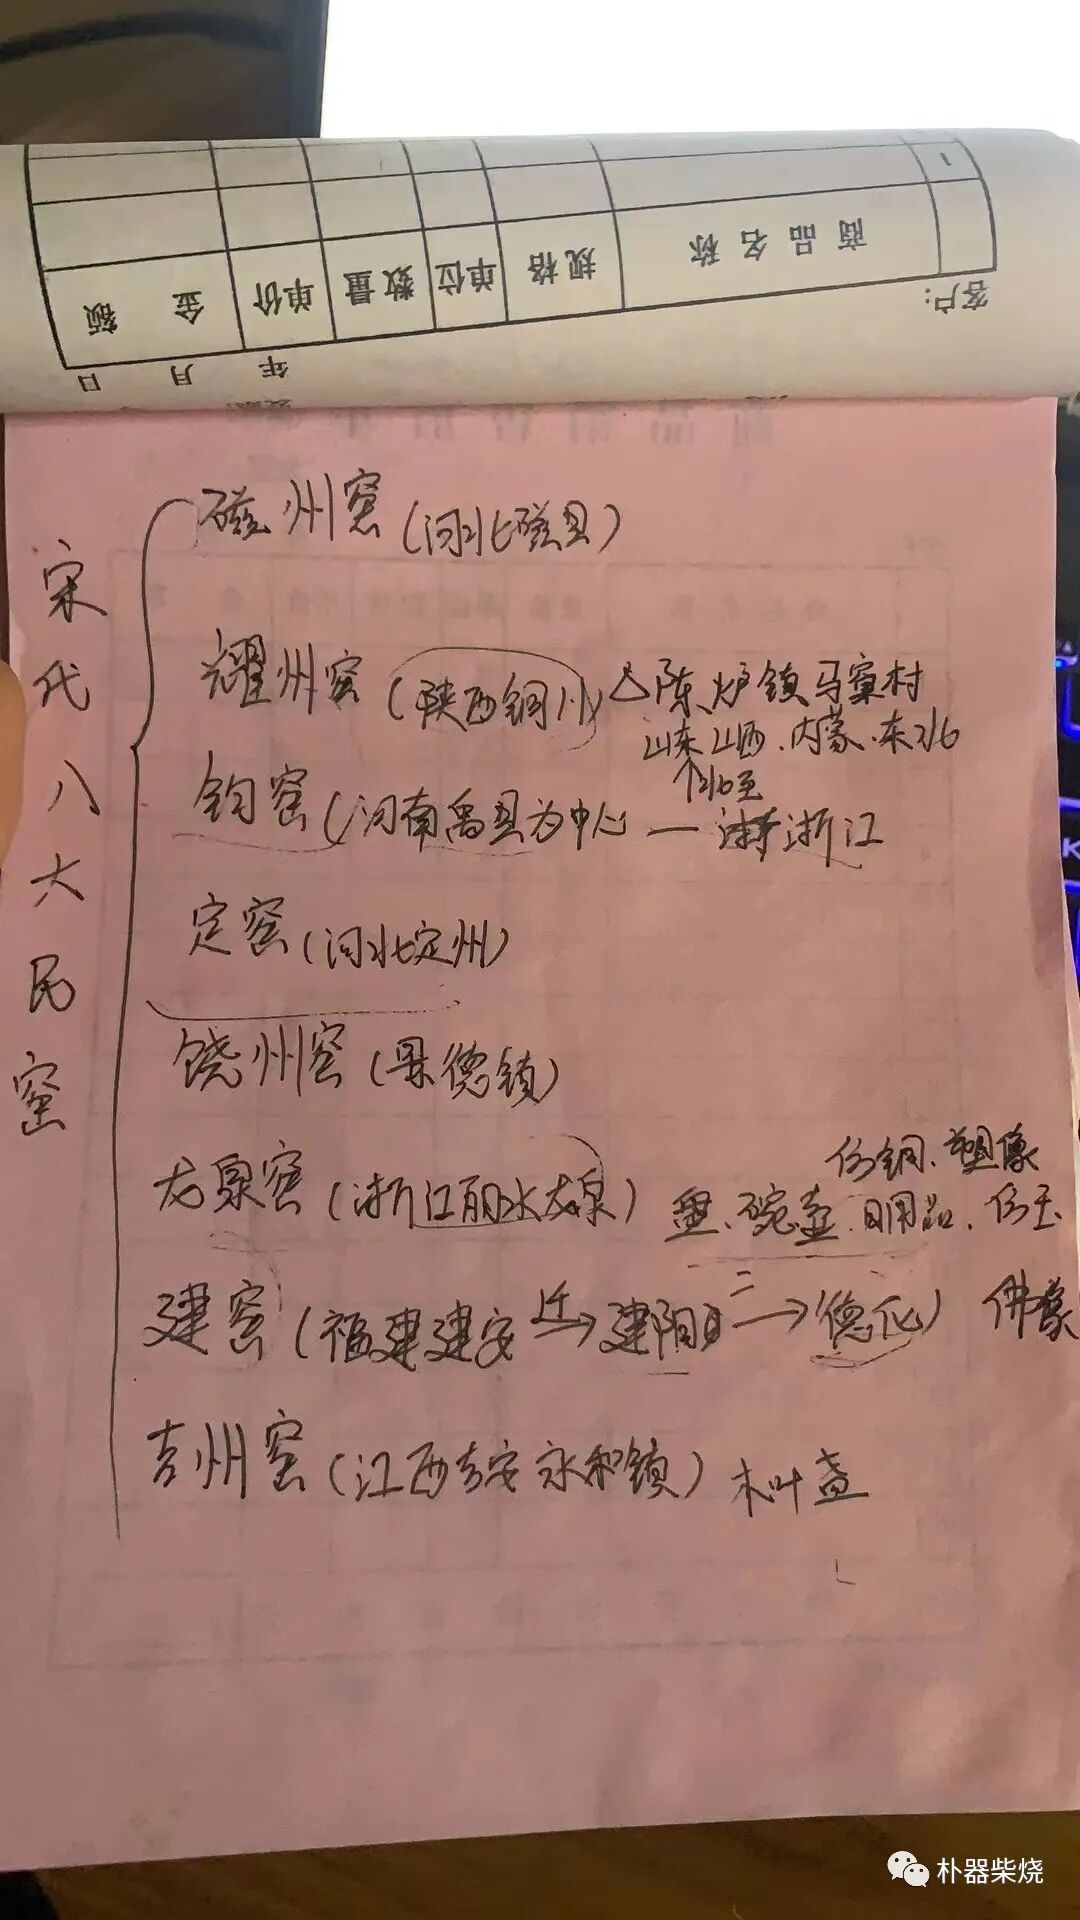 客户：
商品名称 规格 单位 数量 单价 金额
年 月 日
宋代八大民窑
磁州窑(河北磁县)
耀州窑(陕西铜川)△陈炉镇马窠村
山东山西、内蒙、东北
↑北至
钧窑(河南禹县为中心 — 浙江
定窑(河北定州)
饶州窑(景德镇)
仿铜、塑像
龙泉窑(浙江丽水龙泉) 盘、碗壶、日用品、仿玉
建窑(福建建安 迁→ 建阳 二→ 德化) 佛像
吉州窑(江西吉安永和镇) 木叶盏
朴器柴烧